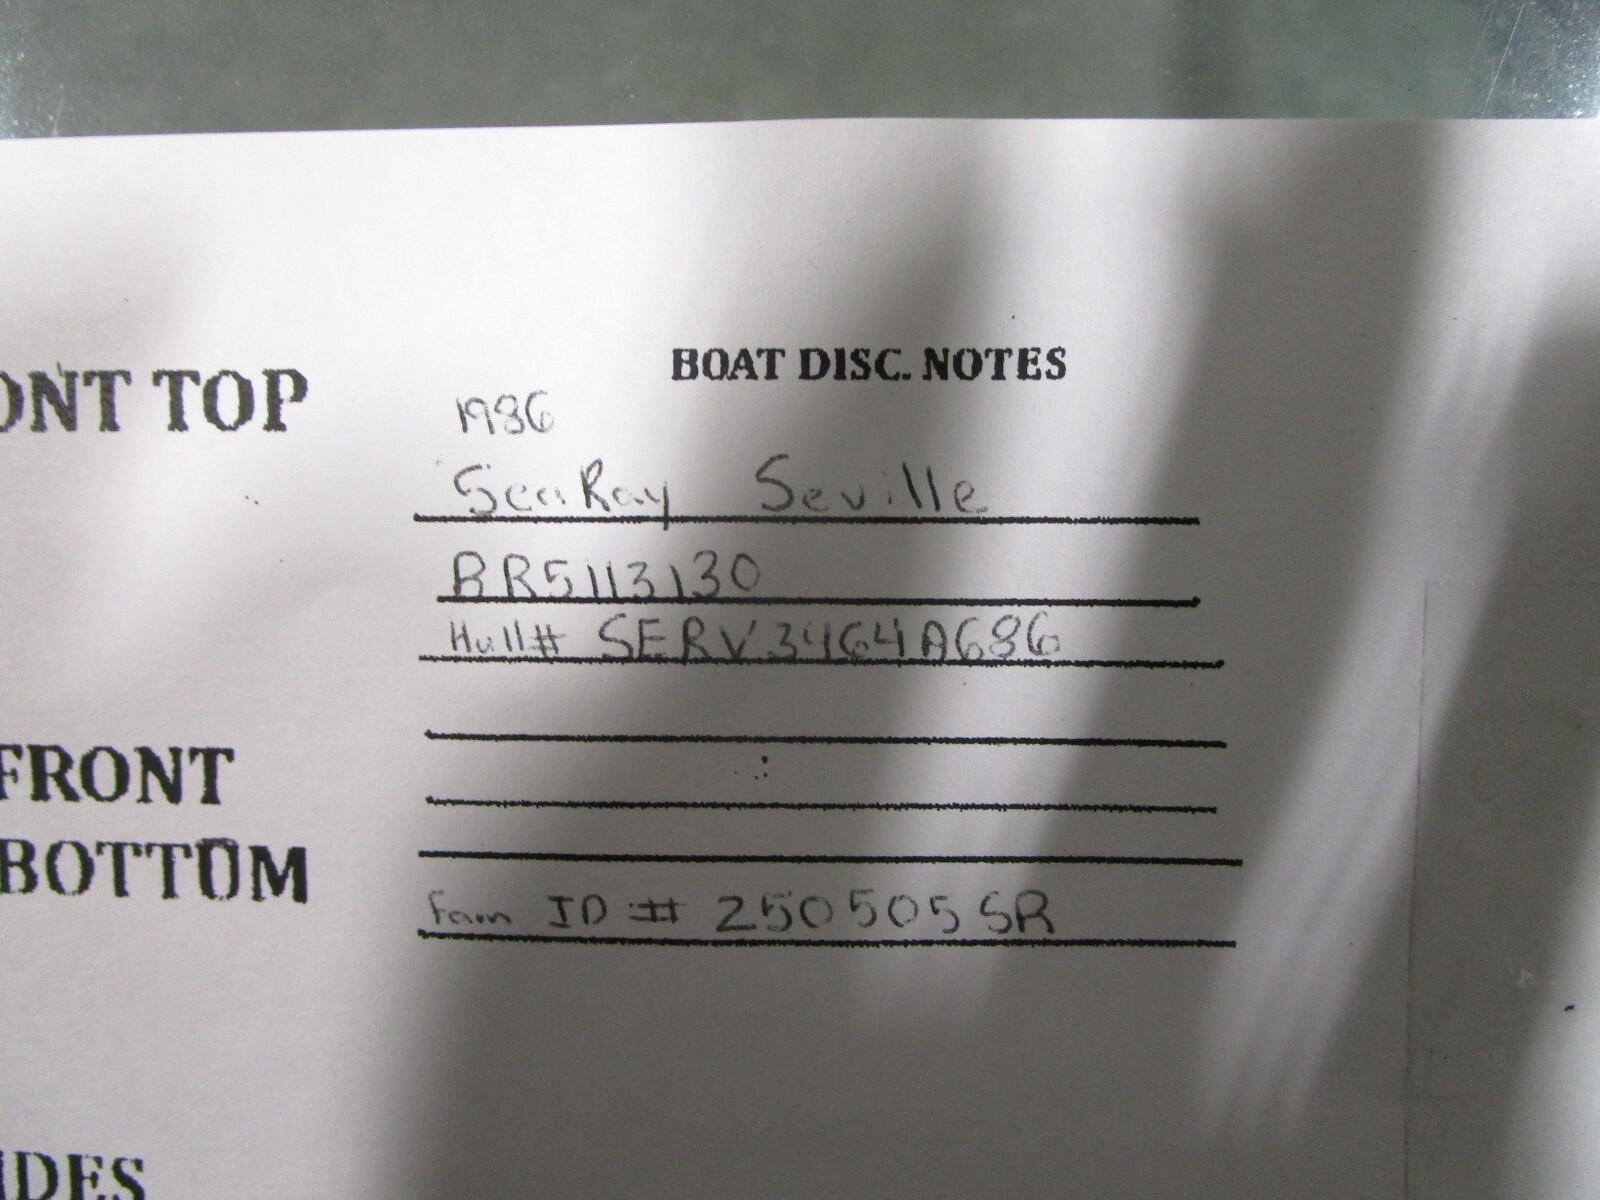 BOAT DISC. NOTES
ONT TOP
1986
SeaRay Seville
BR5113130
Hull# SERV3464A686
FRONT
BOTTOM
Fam ID # 250505SR
IDES